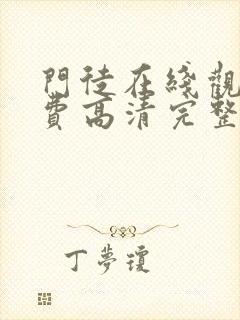 門徒在綫觀
費高清完整
丁夢瓊